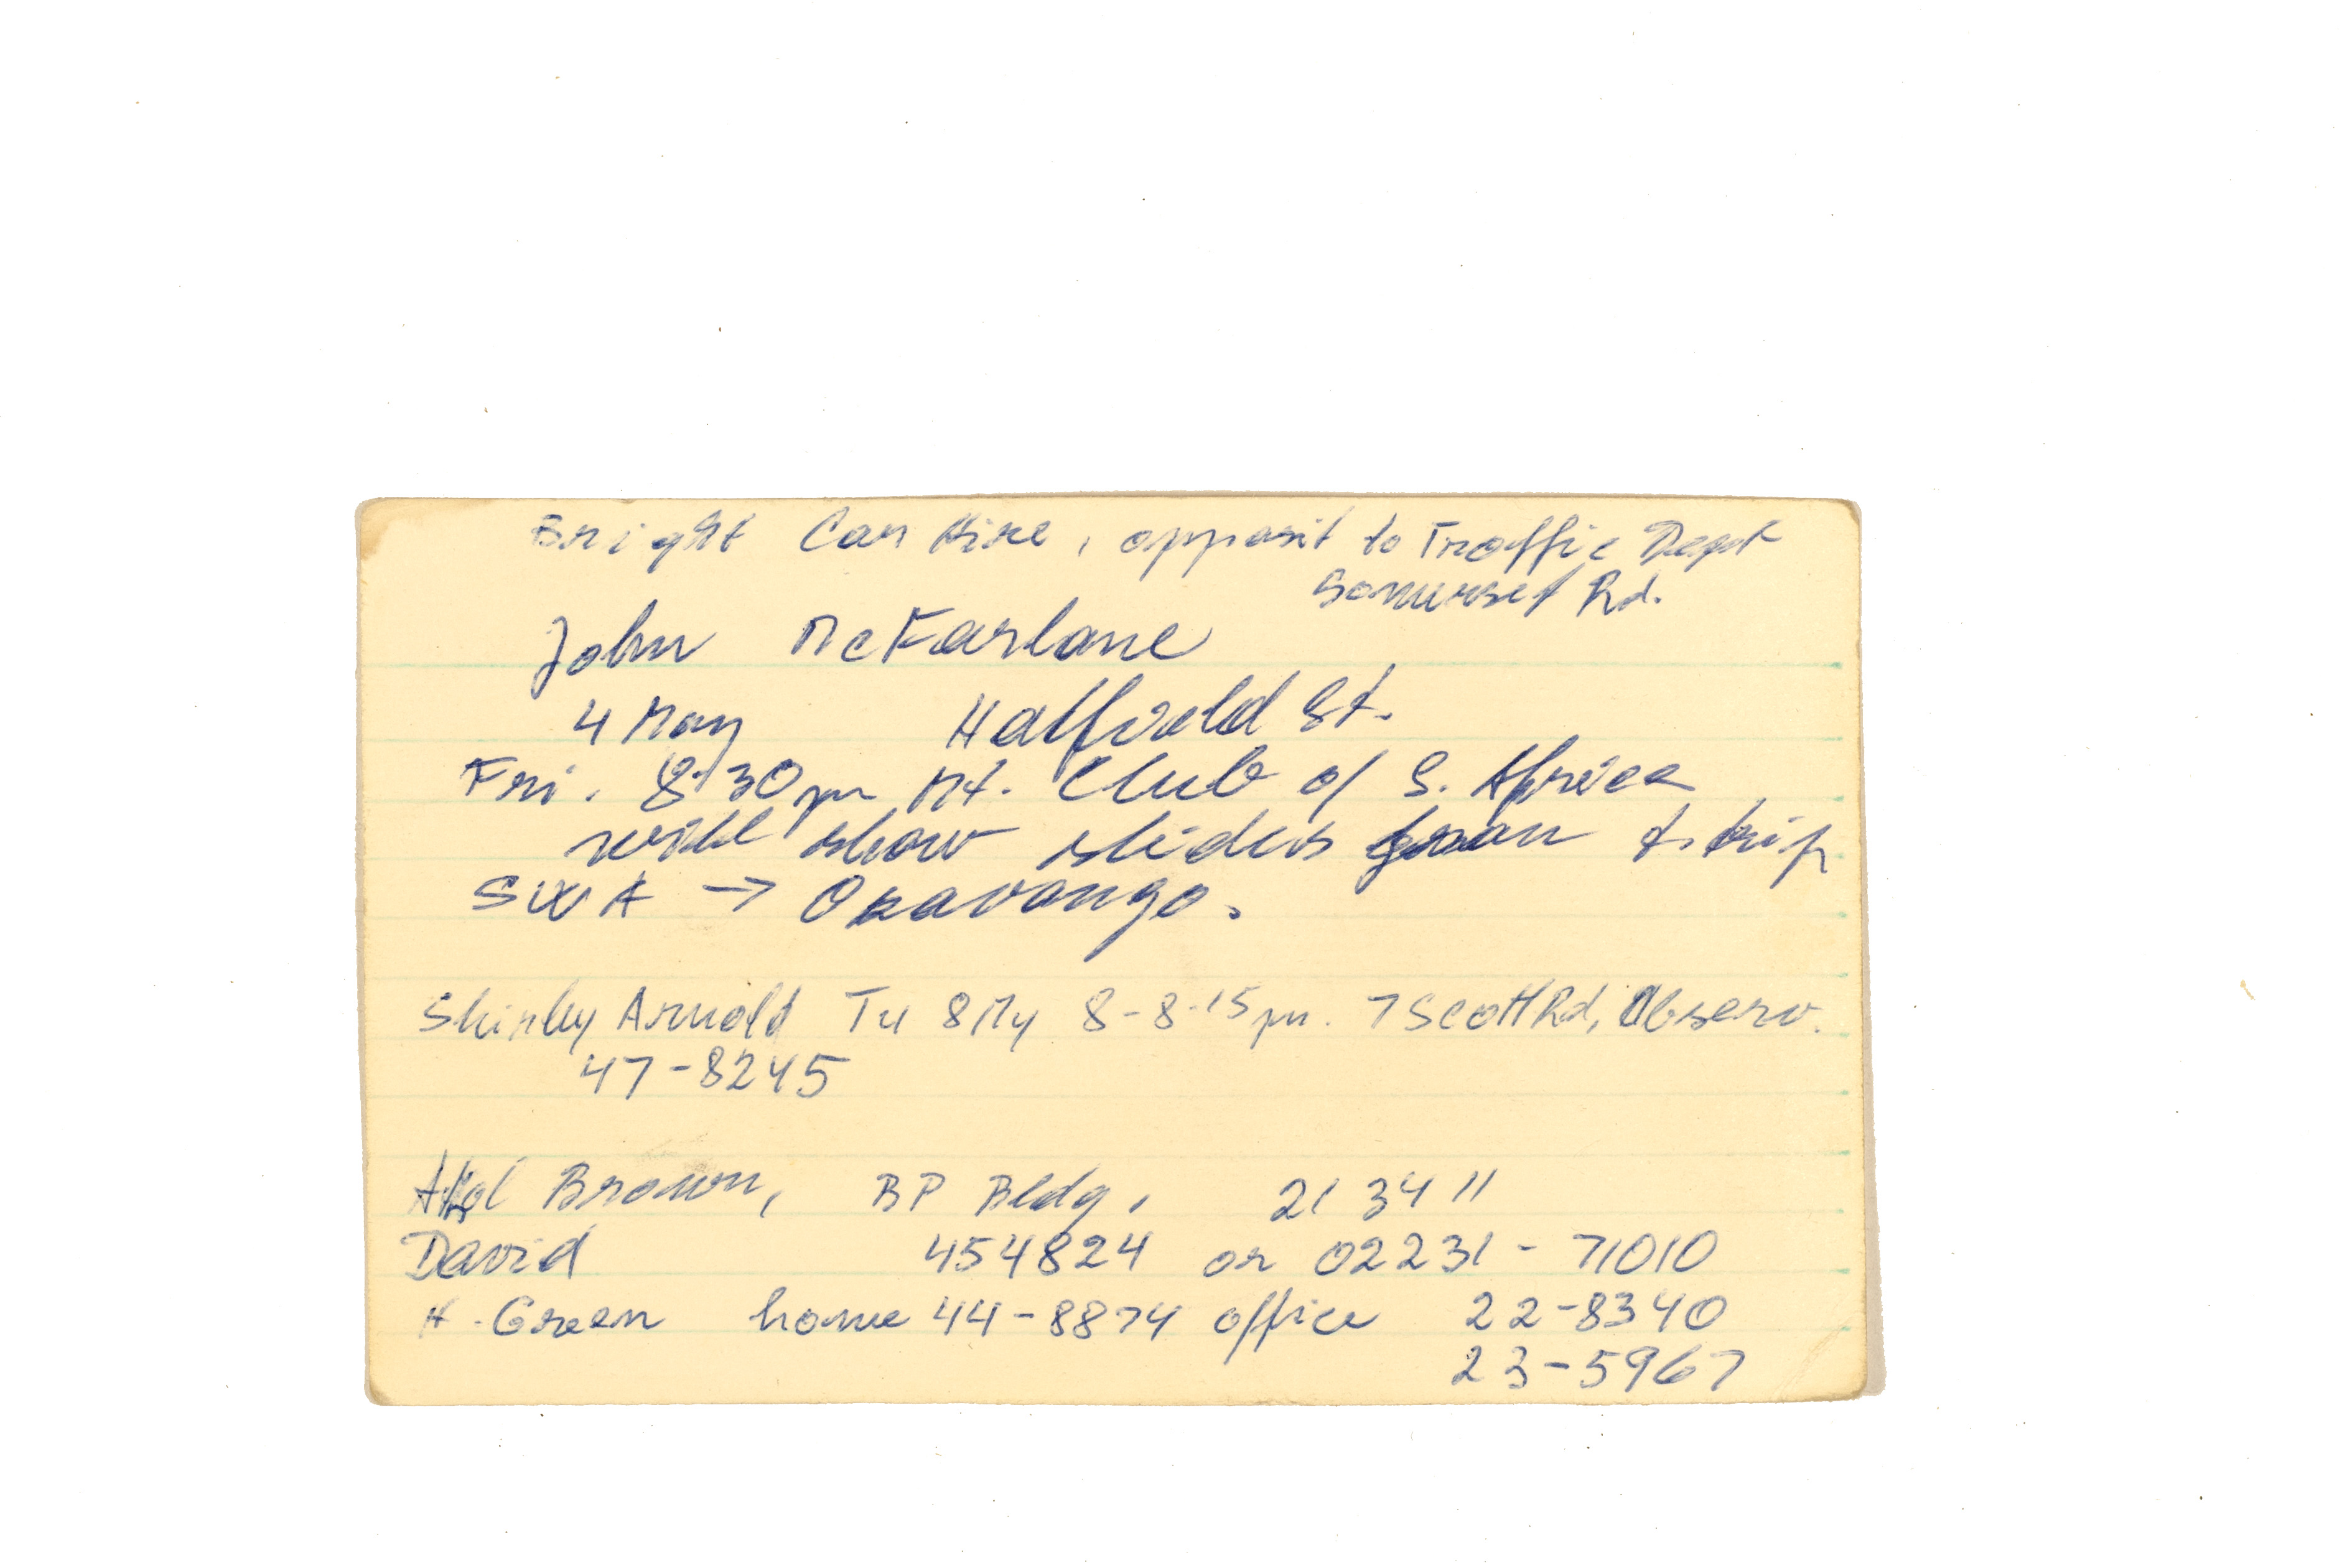 Bright Car Hire, opposit to Traffic Dept
Somerset Rd.
John McFarlane
4 May Hatfield St.
Fri. 8.30 pm Mt. Club of S. Africa
will show slides from trip
SWA → Okavango.
Shirley Arnold Tu 8 My 8-8.15 pm. 7 Scott Rd, Observ.
47-8245
Brown, BP Bldg, 21 34 11
David 454824 or 02231 - 71010
H. Green home 44-8874 office 22-8340
23-5967